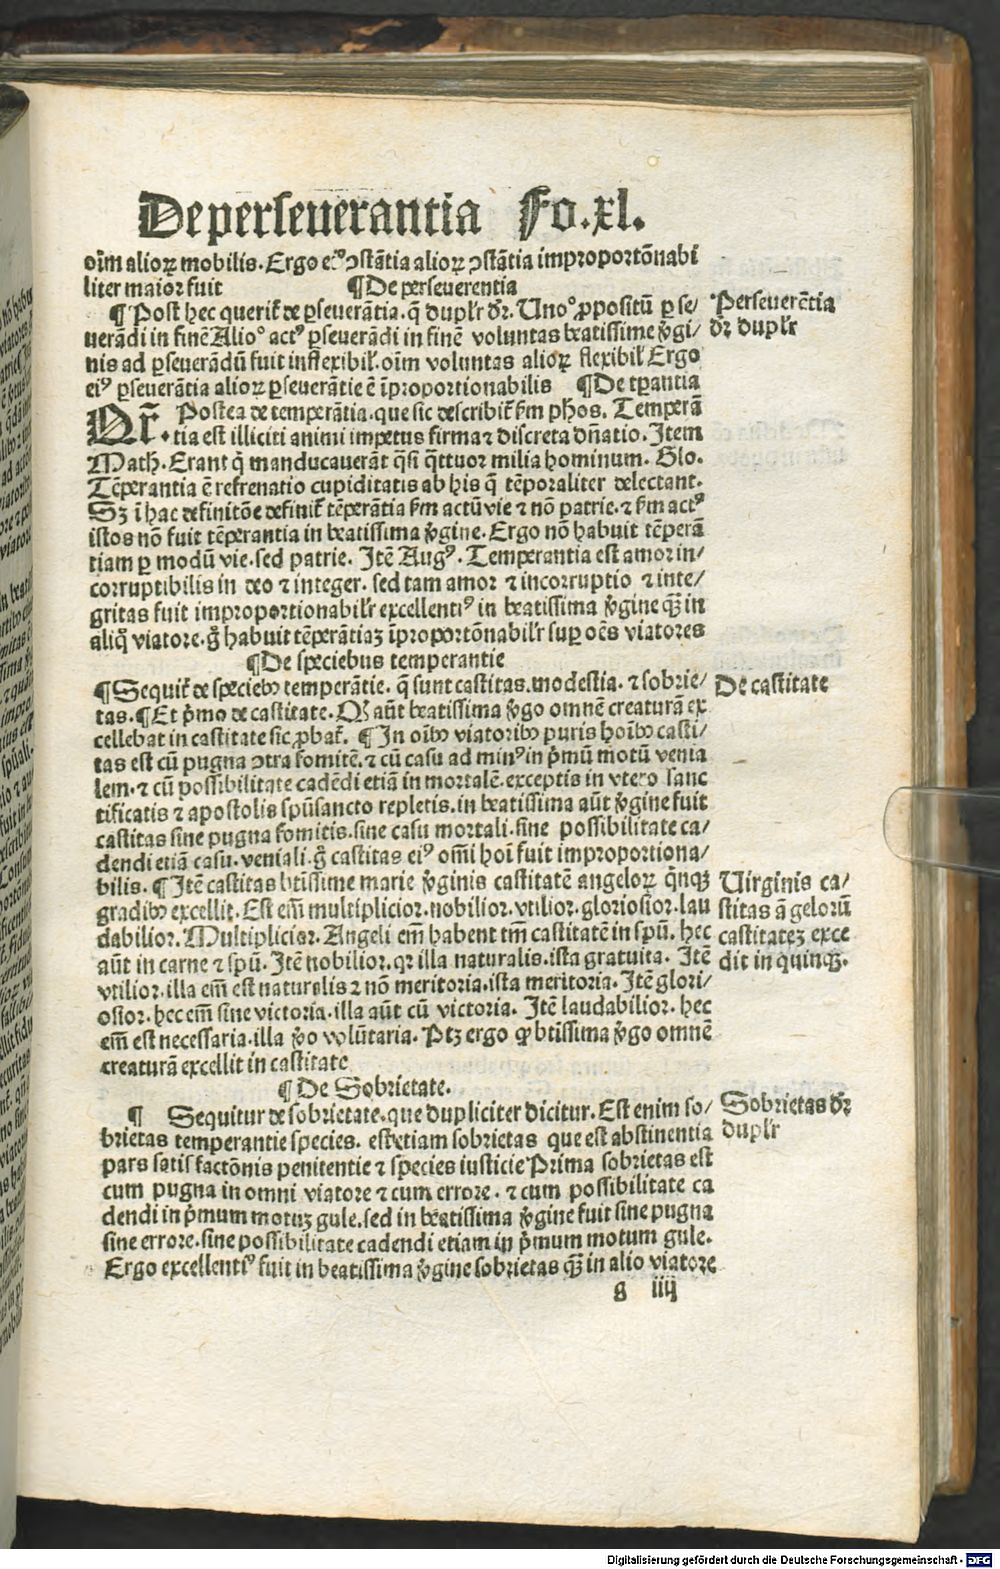 De perseuerantia Fo.xl.
oīm alioꝝ mobilis. Ergo eiꝰ ꝯstātia alioꝝ ꝯstātia improportōnabi
liter maior fuit ¶De perseuerentia
¶ Post hec querit̄ de ꝑseuerātia. q̄ duplr̄ dr̄. Unoº ꝓpositū ꝑse⸗
uerādi in finē Alioº actꝰ ꝑseuerādi in finē voluntas beatissime v̄gi⸗
nis ad ꝑseuerādū fuit inflexibil̓. oīm voluntas alioꝝ flexibil̓ Ergo
eiꝰ ꝑseuerātia alioꝝ ꝑseuerātie ē īproportionabilis ¶De tꝑantia
Postea de temperātia. que sic describit̄ ẜm ph̄os. Temperā
tia est illiciti animi impetus firma ⁊ discreta dn̄atio. Item
Math̄. Erant q̄ manducauerāt q̄si q̄ttuor milia hominum. Glo.
Tēperantia ē refrenatio cupiditatis ab his q̄ tēporaliter delectant.
Sꝫ ī hac definitōe definit̄ tēperātia ẜm actū vie ⁊ nō patrie. ⁊ ẜm actꝰ
istos nō fuit tēperantia in beatissima v̄gine. Ergo nō habuit tēperā
tiam ꝑ modū vie. sed patrie. Itē Augꝰ. Temperantia est amor in⸗
corruptibilis in deo ⁊ integer. sed tam amor ⁊ incorruptio ⁊ inte⸗
gritas fuit improportionabilr̄ excellentiꝰ in beatissima v̄gine qꝫ̄ in
aliq̄ viatore. g̊ habuit tēperātiaꝫ īproportōnabilr̄ suꝑ oēs viatores
¶De speciebus temperantie
¶Sequit̄ de speciebꝰ temperātie. q̄ sunt castitas. modestia. ⁊ sobrie⸗
tas. ¶Et p̄mo de castitate. Qꝫ aūt beatissima v̄go omnē creaturā ex
cellebat in castitate sic ꝓbat̄. ¶In oībꝰ viatoribꝰ puris hoībꝰ casti⸗
tas est cū pugna ꝯtra fomitē. ⁊ cū casu ad minꝰ in p̄mū motū venia
lem. ⁊ cū possibilitate cadēdi etiā in mortalē. exceptis in vtero sanc
tificatis ⁊ apostolis spūsancto repletis. in beatissima aūt v̄gine fuit
castitas sine pugna fomitis. sine casu mortali. sine possibilitate ca⸗
dendi etiā casu. veniali. g̊ castitas eiꝰ omī hoī fuit improportiona⸗
bilis. ¶Itē castitas btīssime marie v̄ginis castitatē angeloꝝ q̄nqꝫ
gradibꝰ excellit. Est em̄ multiplicior. nobilior. vtilior. gloriosior. lau
dabilior. Multiplicior. Angeli em̄ habent tm̄ castitatē in spū. hec
aūt in carne ⁊ spū. Itē nobilior. qꝛ illa naturalis. ista gratuita. Itē
vtilior. illa em̄ est naturalis ⁊ nō meritoria. ista meritoria. Itē glori⸗
osior. hec em̄ sine victoria. illa aūt cū victoria. Itē laudabilior. hec
em̄ est necessaria. illa v̊o volūtaria. Ptꝫ ergo ꝙ btīssima v̄go omnē
creaturā excellit in castitate
¶De Sobrietate.
¶ Sequitur de sobrietate. que dupliciter dicitur. Est enim so⸗
brietas temperantie species. est etiam sobrietas que est abstinentia
pars satisfactōnis penitentie ⁊ species iusticie Prima sobrietas est
cum pugna in omni viatore ⁊ cum errore. ⁊ cum possibilitate ca
dendi in p̄mum motuꝫ gule. sed in beatissima v̄gine fuit sine pugna
sine errore. sine possibilitate cadendi etiam in p̄mum motum gule.
Ergo excellentiꝰ fuit in beatissima v̄gine sobrietas qꝫ̄ in alio viatore
g iiij
Perseuerētia
dr̄ duplr̄
De castitate
Uirginis ca⸗
stitas āgelorū
castitateꝫ exce
dit in quinqꝫ.
Sobrietas dr̄
duplr̄
Digitalisierung gefördert durch die Deutsche Forschungsgemeinschaft - DFG